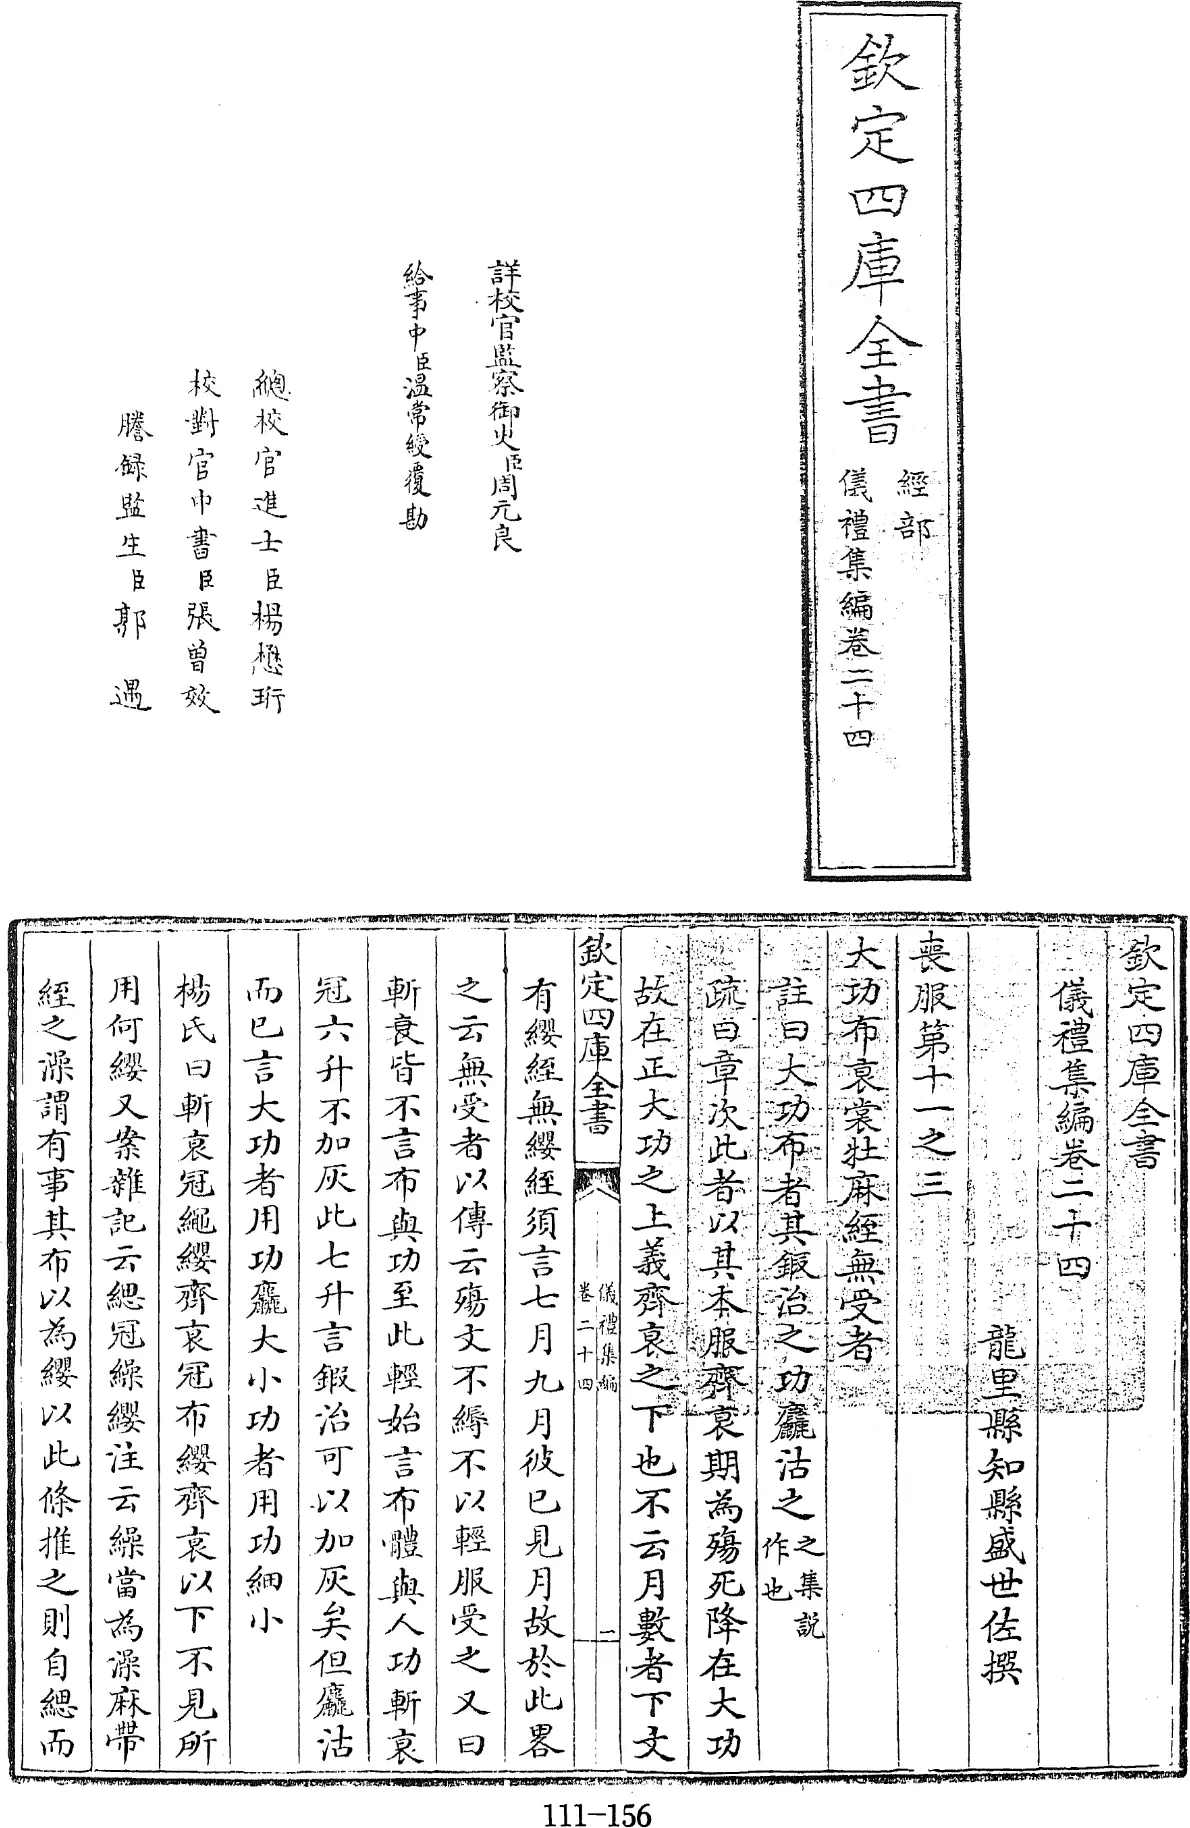 欽定四庫全書
經部
儀禮集編卷二十四
詳校官監察御史臣周元良
給事中臣溫常綬覆勘
總校官進士臣楊懋珩
校對官中書臣張曾效
謄錄監生臣郭遇
欽定四庫全書
儀禮集編卷二十四
龍里縣知縣盛世佐撰
喪服第十一之三
大功布衰裳牡麻絰無受者
註曰大功布者其鍛治之功麤沽之
之集說
作也
疏曰章次此者以其本服齊衰期為殤死降在大功
故在正大功之上義齊衰之下也不云月數者下文
欽定四庫全書
儀禮集編
卷二十四
二
有纓絰無纓絰須言七月九月彼已見月故於此畧
之云無受者以傳云殤文不縟不以輕服受之又曰
斬衰皆不言布與功至此輕始言布體與人功斬衰
冠六升不加灰此七升言鍛治可以加灰矣但麤沽
而已言大功者用功麤大小功者用功細小
楊氏曰斬衰冠繩纓齊衰冠布纓齊衰以下不見所
用何纓又案雜記云緦冠繰纓注云繰當為澡麻帶
絰之澡謂有事其布以為纓以此條推之則自緦而
111-156